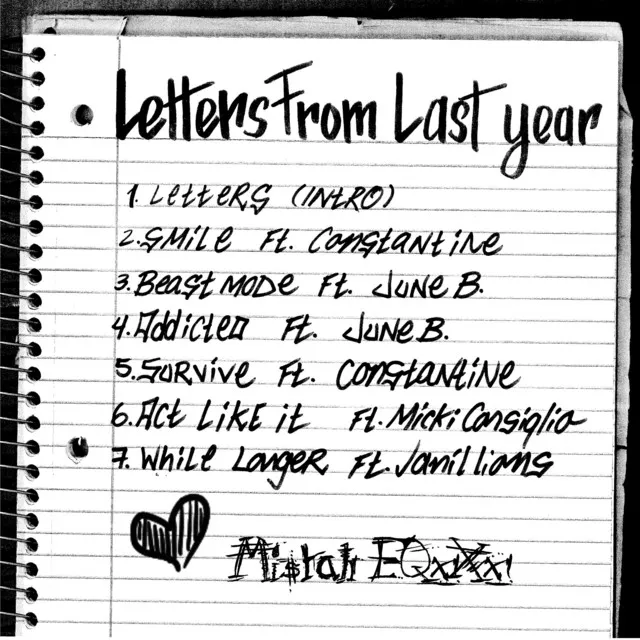 Letters From Last year
1. Letters (INtRO)
2. SMiLe Ft. Constantine
3. Beast MODe Ft. JuNe B.
4. Addicted Ft. JuNe B.
5. SuRvive Ft. Constantine
6. Act LiKE it Ft. Micki Consiglio
7. While Longer Ft. Janilliams